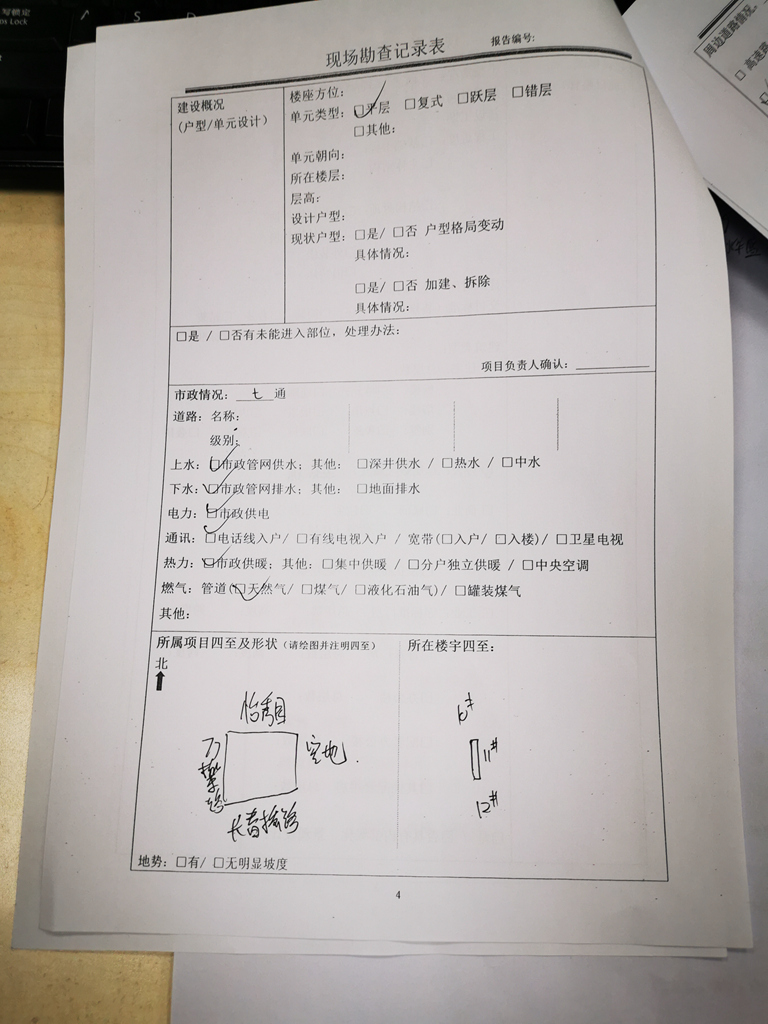 现场勘查记录表
报告编号:
建设概况
(户型/单元设计)
楼座方位:
单元类型: □平层 □复式 □跃层 □错层
□其他:
单元朝向:
所在楼层:
层高:
设计户型:
现状户型: □是/ □否 户型格局变动
具体情况:
□是/ □否 加建、拆除
具体情况:
□是 / □否有未能进入部位, 处理办法:
项目负责人确认:
市政情况: 七 通
道路: 名称:
级别:
上水: □市政管网供水; 其他: □深井供水 / □热水 / □中水
下水: □市政管网排水; 其他: □地面排水
电力: □市政供电
通讯: □电话线入户/ □有线电视入户 / 宽带(□入户/ □入楼)/ □卫星电视
热力: □市政供暖; 其他: □集中供暖 / □分户独立供暖 / □中央空调
燃气: 管道(□天然气/ □煤气/ □液化石油气)/ □罐装煤气
其他:
所属项目四至及形状 (请绘图并注明四至)
所在楼宇四至:
北
空地
11#
12#
地势: □有/ □无明显坡度
4
周边道路情况
□ 高速路